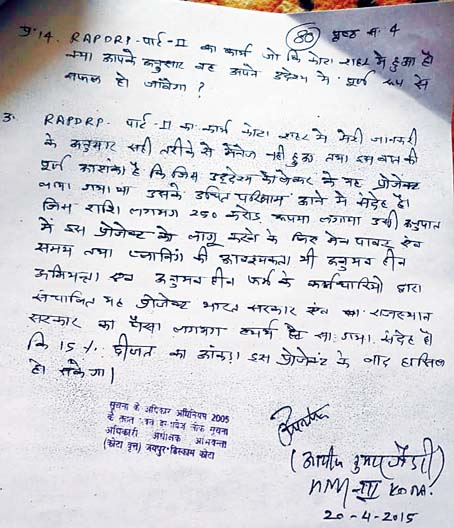 (80) पृष्ठ सं. 4
प्र.14. RAPDRP - पार्ट - II का कार्य जो कि कोटा शहर में हुआ है
क्या आपके अनुसार वह अपने उद्देश्य में पूर्ण रूप से
सफल हो जावेगा ?
उ. RAPDRP - पार्ट - II का कार्य कोटा शहर में मेरी जानकारी
के अनुसार सही तरीके से मैनेज नहीं हुआ तथा इस बात की
पूर्ण आशंका है कि जिस उद्देश्य को लेकर के यह प्रोजेक्ट
लाया गया था उसके उचित परिणाम आने में संदेह है।
जिस राशि लगभग 250 करोड़ रूपया लगाया उसी अनुपात
में इस प्रोजेक्ट को लागू करने के लिए मेन पावर एवं
समय तथा प्लानिंग की आवश्यकता थी अनुभव हीन
अभियन्ता एवं अनुभव हीन फर्म के कर्मचारियो द्वारा
संचालित यह प्रोजेक्ट भारत सरकार एवं राजस्थान
सरकार का पैसा लगभग व्यर्थ ही गया. संदेह है
कि 15 %. छीजत का आंकड़ा इस प्रोजेक्ट के बाद हासिल
हो सकेगा।
सूचना के अधिकार अधिनियम 2005
के तहत लोक सूचना
अधिकारी अधीक्षण अभियन्ता
(कोटा वृत्त) जयपुर डिस्काम कोटा
कुमार
KOTA.
20-4-2015